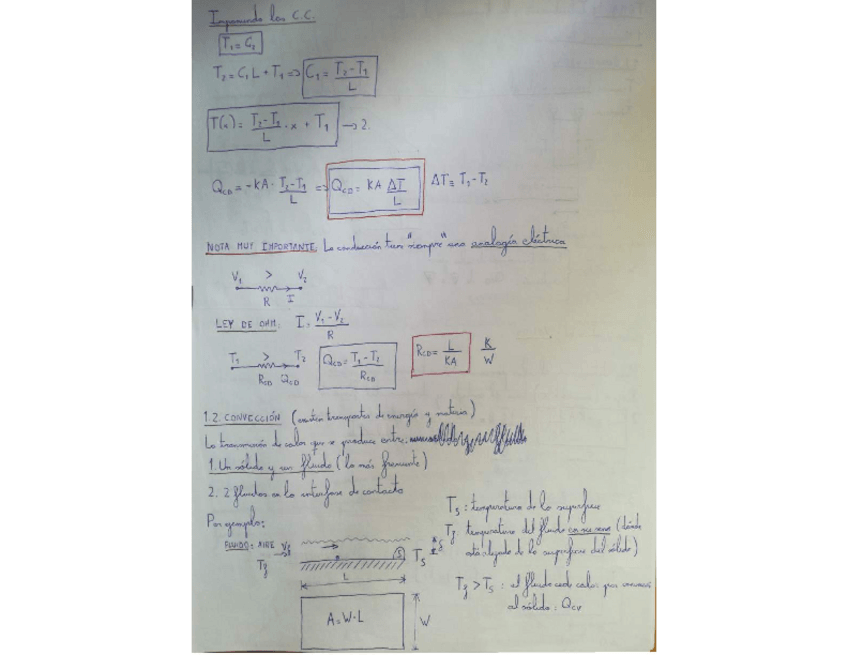 Imponiendo las C.C.
T₁ = C₂
T₂ = C₁ L + T₁ => C₁ = (T₂ - T₁)/L
T(x) = (T₂ - T₁)/L · x + T₁ → 2.
Q_CD = -kA · (T₂ - T₁)/L => Q_CD = KA ΔT/L ΔT ≡ T₁ - T₂
NOTA MUY IMPORTANTE: La conducción tiene "siempre" una analogía eléctrica
V₁ > V₂
R I
LEY DE OHM: I = (V₁ - V₂)/R
T₁ > T₂ Q_CD = (T₁ - T₂)/R_CD R_CD = L/KA K/W
R_CD Q_CD
1.2. CONVECCIÓN (existen transportes de energía y materia)
La transmisión de calor que se produce entre:
1. Un sólido y un fluido (lo más frecuente)
2. 2 fluidos en la interfase de contacto
Por ejemplo:
FLUIDO: AIRE V_f
T_f
S
T_S
L
A = W·L W
T_S: temperatura de la superficie
T_f: temperatura del fluido (dónde
está alejado de la superficie del sólido)
T_f > T_S: el fluido cede calor por convección
al sólido: Q_CV